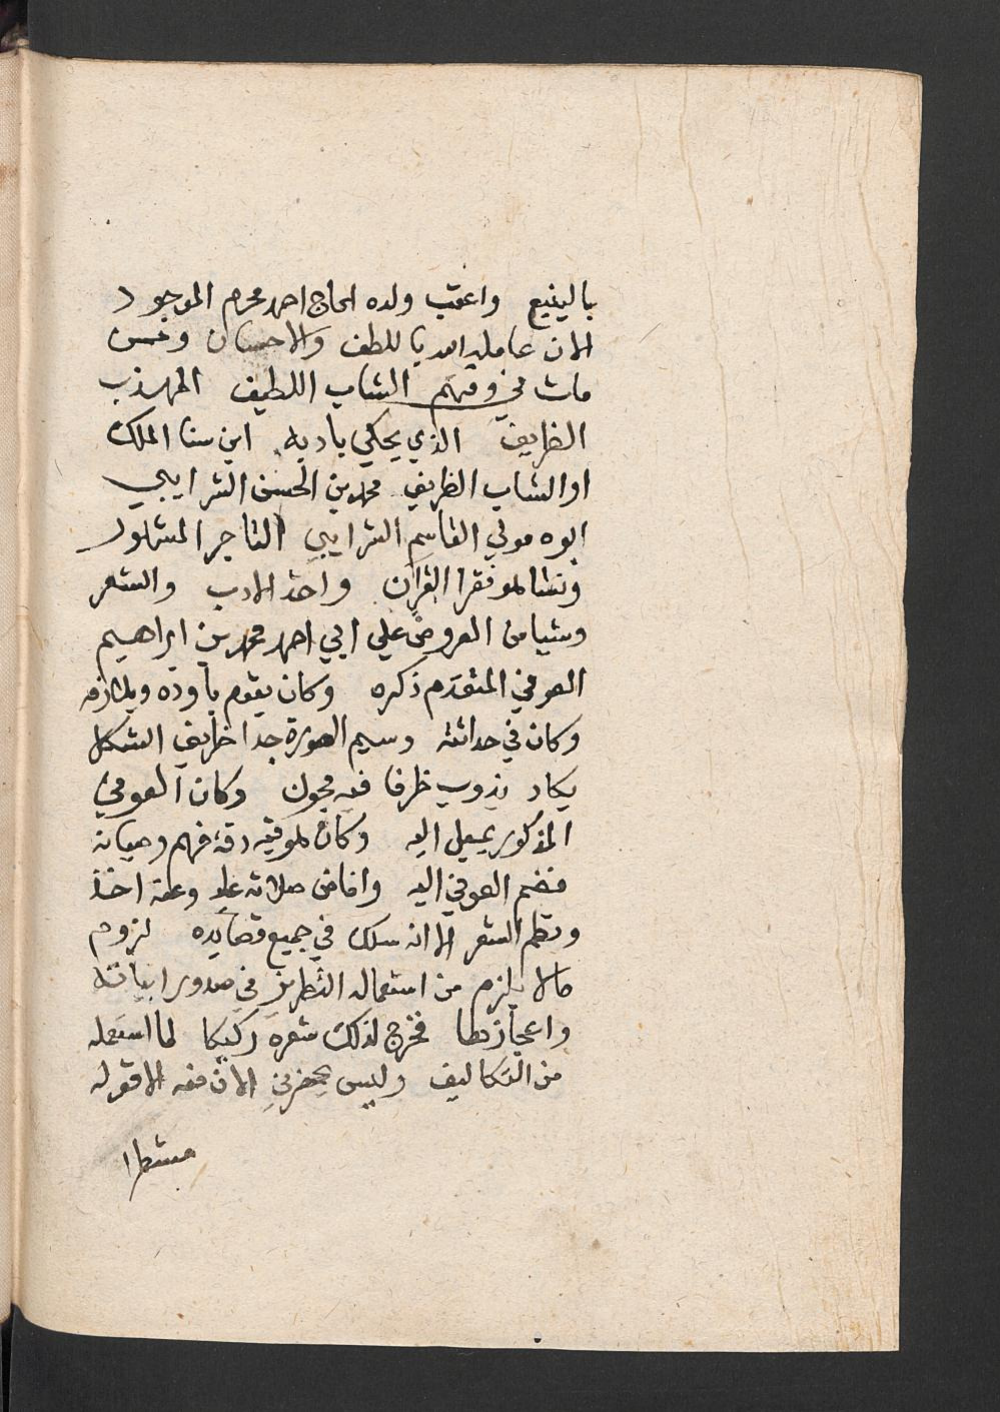 بالينبع واعقب ولده الحاج احمد محرم الموجود
الان عامله الله باللطف والاحسان وممن
مات في وقتهم الشاب اللطيف المهذب
الظريف الذي يحكي بادبه ابن سنا الملك
او الشاب الظريف محمد بن الحسن الشرايبي
ابوه مولي القاسم الشرايبي التاجر المشهور
ونشا هو فقرا القران واخذ الادب والشعر
وشيا من العروض علي ابي احمد محمد بن ابراهيم
العوفي المتقدم ذكره وكان يقوم باوده ويلازمه
وكان في حداثته وسيم الصورة جدا ظريف الشكل
يكاد يذوب ظرفا فيه مجون وكان العوفي
المذكور يميل اليه وكان لموقيه دقة فهم وصيانة
فضم العوفي اليه وافاض صلاته عليه وعنه اخذ
ونظم الشعر الا انه سلك في جميع قصايده لزوم
مالا يلزم من استعمال التطريز في صدور ابياته
واعجازها فخرج لذلك شعره ركيكا لما استعمله
من التكاليف وليس يحضرني الان منه الا قوله
مشطرا